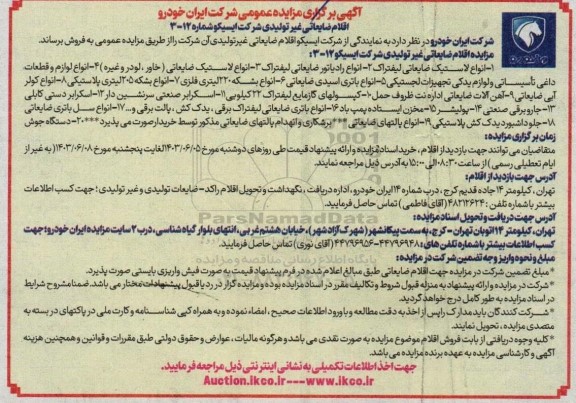 آگهی برگزاری مزایده عمومی شرکت ایران خودرو
اقلام ضایعاتی غیر تولیدی شرکت ایسیکو شماره ۱۲-۳
شرکت ایران خودرو در نظر دارد به نمایندگی از شرکت ایسیکو اقلام ضایعاتی غیرتولیدی آن شرکت را از طریق مزایده عمومی به فروش برساند.
مزایده اقلام ضایعاتی غیر تولیدی شرکت ایسیکو ۱۲-۳:
۱-انواع لاستیک ضایعاتی لیفتراک ۲-انواع رادیاتور ضایعاتی لیفتراک ۳-انواع لاستیک ضایعاتی (خاور، لودر و غیره) ۴-انواع لوازم و قطعات
داغی تأسیساتی و لوازم یدکی تجهیزات لجستیکی ۵-انواع باتری اسیدی ضایعاتی ۶-انواع بشکه ۲۲۰لیتری فلزی ۷-انواع بشکه ۲۵لیتری پلاستیکی ۸-انواع کولر
آبی ضایعاتی ۹-آهن آلات ضایعاتی اداره نت ظروف حمل ۱۰-کپسولهای گازمایع لیفتراک ۲۲کیلویی ۱۱-اسکرابر صنعتی سرنشین دار ۱۲-اسکرابر دستی کابلی
۱۳-جاروبرقی صنعتی ۱۴-پولیشر ۱۵-مخزن ایستاده پمپ باد ۱۶-انواع باتری ضایعاتی لیفتراک برقی، یدک کش، پالت برقی و... ۱۷-انواع سل باتری ضایعاتی
۱۸-جلو داشبورد یدک کش پلاستیکی ۱۹-انواع پالتهای ضایعاتی ***برشکاری و انهدام پالتهای ضایعاتی مذکور توسط خریدار صورت می پذیرد***۲۰-دستگاه جوش
زمان برگزاری مزایده:
متقاضیان می توانند جهت بازدید از اقلام، خرید اسناد مزایده و ارائه پیشنهاد قیمت طی روزهای دوشنبه مورخ ۱۴۰۳/۰۶/۰۵ لغایت پنجشنبه مورخ ۱۴۰۳/۰۶/۰۸ (به غیر از
ایام تعطیلی رسمی) از ساعت ۰۸:۳۰ الی ۱۵:۰۰ به آدرس ذیل مراجعه نمایند.
آدرس جهت بازدید از اقلام:
تهران، کیلومتر ۱۴ جاده قدیم کرج، درب شماره ۱۴ ایران خودرو، اداره دریافت، نگهداشت و تحویل اقلام راکد-ضایعات تولیدی و غیر تولیدی؛ جهت کسب اطلاعات
بیشتر با شماره تلفن: ۴۸۲۱۲۶۲۴ (آقای فاطمی) تماس حاصل فرمایید.
آدرس جهت دریافت و تحویل اسناد مزایده:
تهران، کیلومتر ۱۴ اتوبان تهران-کرج، به سمت پیکانشهر (شهرک آزادشهر)، خیابان هشتم غربی، انتهای بلوار گیاه شناسی، درب ۲ سایت مزایده ایران خودرو؛ جهت
کسب اطلاعات بیشتر با شماره تلفن های: ۴۴۷۹۶۹۴۸-۴۴۷۹۶۹۵۶ (آقای نوری) تماس حاصل فرمایید.
مبلغ و نحوه واریز وجه تضمین شرکت در مزایده:
*مبلغ تضمین شرکت در مزایده جهت اقلام ضایعاتی طبق مبالغ اعلام شده در فرم پیشنهاد قیمت به صورت فیش واریزی بایستی صورت پذیرد.
*شرکت در مزایده و ارائه پیشنهاد به منزله قبول شروط و تکالیف مقرر در اسناد مزایده بوده و مزایده گزار در رد یا قبول پیشنهادات مختار می باشد. ضمنا مشروح شرایط
در اسناد مزایده به طور کامل درج خواهد گردید.
*شرکت کنندگان باید مدارک را پس از اخذ به دقت مطالعه و با ورود اطلاعات صحیح، امضاء نموده و به همراه کپی شناسنامه و کارت ملی در پاکتهای در بسته به
متصدی مزایده، تحویل نمایند.
*کلیه وجوه دریافتی از بابت فروش اقلام موضوع مزایده به صورت نقدی می باشد و هرگونه مالیات، عوارض و حقوق دولتی طبق مقررات و قوانین و همچنین هزینه
آگهی و کارشناسی مزایده به عهده برنده مزایده می باشد.
جهت اخذ اطلاعات تکمیلی به نشانی اینترنتی ذیل مراجعه فرمایید.
Auction.ikco.ir---www.ikco.ir
ParsNamadData